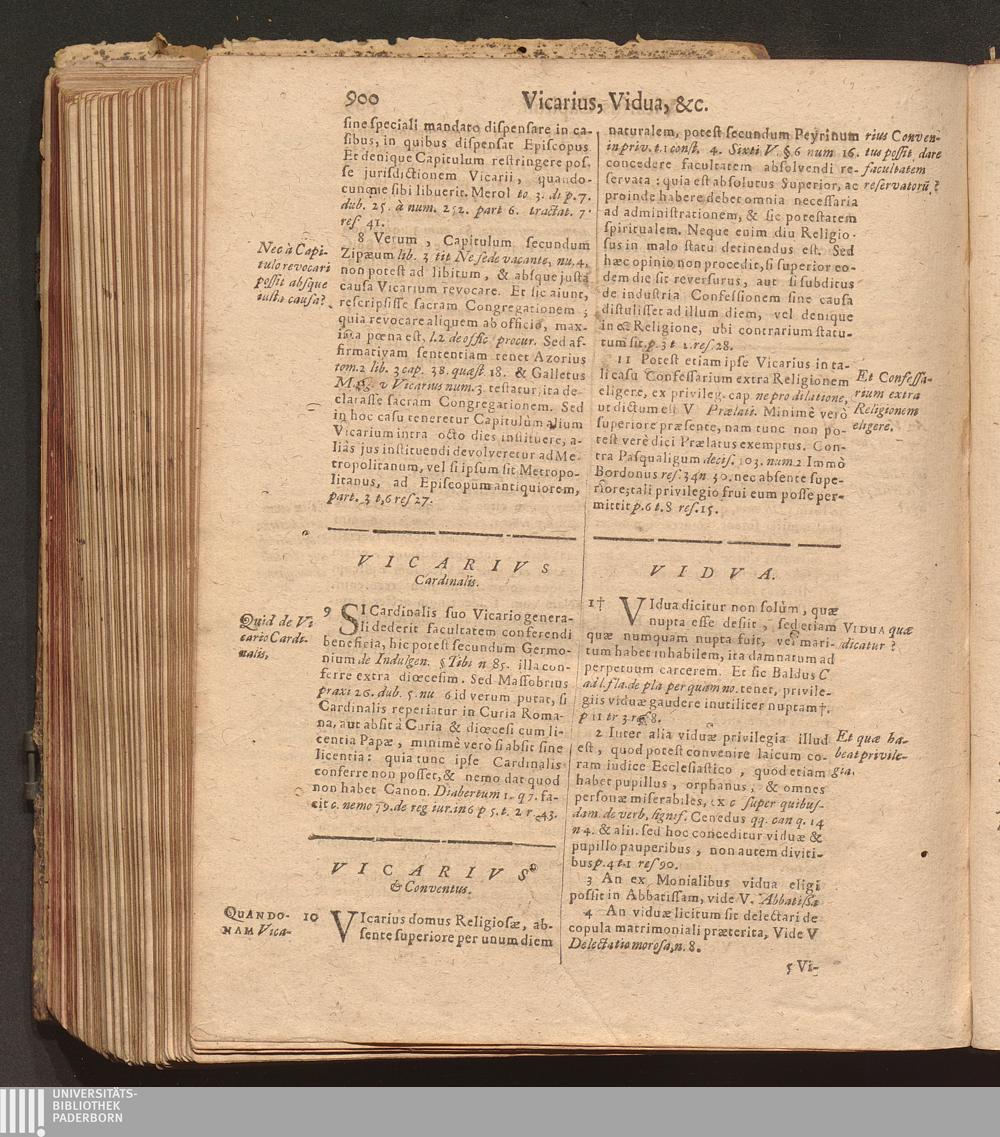 900
Vicarius, Vidua, &c.
sine speciali mandato dispensare in ca-
sibus, in quibus dispensat Episcopus
Et denique Capitulum restringere pos.
se jurisdictionem Vicarii, quando-
cunque sibi libuerit. Merol to 3. di p. 7.
dub. 25. à num. 252. part 6. tractat. 7.
res 41.
Nec à Capi-
tulo revocari
possit absque
iusta causa?
8 Verum, Capitulum secundum
Zipæum lib. 3 tit Ne sede vacante, nu, 4,
non potest ad libitum, & absque justa
causa Vicarium revocare. Et sic aiunt,
rescripsisse sacram Congregationem ;
quia revocare aliquem ab officio, max-
ima pœna est, l. 2 de offic procur. Sed af-
firmativam sententiam tenet Azorius
tom. 2 lib. 3 cap. 38. quæst 18. & Galletus
Mag. v Vicarius num. 3. testatur, ita de-
clarasse sacram Congregationem. Sed
in hoc casu teneretur Capitulùm alium
Vicarium intra octo dies instituere, a-
liàs jus instituendi devolveretur ad Me-
tropolitanum, vel si ipsum sit Metropo-
litanus, ad Episcopum antiquiorem,
part. 3 t, 6 res 27.
VICARIVS
Cardinalis.
Quid de Vi
cario Cardi-
nalis,
9 SI Cardinalis suo Vicario genera-
li dederit facultatem conferendi
beneficia, hic potest secundum Germo-
nium de Indulgen. § Tibi n 85. illa con-
ferre extra diœcesim. Sed Massobrius
praxi 26. dub. 5. nu 6 id verum putat, si
Cardinalis reperiatur in Curia Roma-
na, aut absit à Curia & diœcesi cum li-
centia Papæ, minimè verò si absit sine
licentia: quia tunc ipse Cardinalis
conferre non posset, & nemo dat quod
non habet Canon. Diabertum 1. q 7. fa-
cit c. nemo 79. de reg iur. in 6 p 5. t. 2 r 43.
VICARIVS
& Conventus.
QUANDO-
NAM Vica-
10 VIcarius domus Religiosæ, ab-
sente superiore per unum diem
naturalem, potest secundum Peyrinum
in priv. t. 1 const. 4. Sixti V. § 6 num 16.
concedere facultatem absolvendi re-
servata: quia est absolutus Superior, ac
proinde habere debet omnia necessaria
ad administrationem, & sic potestatem
spiritualem. Neque enim diu Religio-
sus in malo statu detinendus est. Sed
hæc opinio non procedit, si superior eo-
dem die sit reversurus, aut si subditus
de industria Confessionem sine causa
distulisset ad illum diem, vel denique
in ea Religione, ubi contrarium statu-
tum sit, p. 3 t 2. res 28.
rius Conven-
tus possit dare
facultatem
reservatorũ?
11 Potest etiam ipse Vicarius in ta-
li casu Confessarium extra Religionem
eligere, ex privileg. cap ne pro dilatione,
ut dictum est V Prælati. Minimè verò
superiore præsente, nam tunc non po-
test verè dici Prælatus exemptus. Con-
tra Pasqualigum decis. 103. num 2 Immò
Bordonus res. 34 n 30. nec absente supe-
riore; tali privilegio frui eum posse per-
mittit p. 6 t. 8 res. 15.
Et Confessa-
rium extra
Religionem
eligere.
VIDVA.
1† VIdua dicitur non solùm, quæ
nupta esse desiit, sed etiam
quæ numquam nupta fuit, vel mari-
tum habet inhabilem, ita damnatum ad
perpetuum carcerem. Et sic Baldus C
ad l. fla. de pla per quam no. tenet, privile-
giis viduæ gaudere inutiliter nuptam†.
p 11 tr 3 res 8.
VIDUA quæ
dicatur?
2 Inter alia viduæ privilegia illud
est, quod potest convenire laicum co-
ram iudice Ecclesiastico, quod etiam
habet pupillus, orphanus, & omnes
personæ miserabiles, ex c super quibus-
dam de verb, signif. Cenedus qq. can q. 14
n 4. & alii. sed hoc conceditur viduæ &
pupillo pauperibus, non autem diviti-
bus p. 4 t. 1 res 90.
Et quæ ha-
beat privile-
gia.
3 An ex Monialibus vidua eligi
possit in Abbatissam, vide V. Abbatissa
4 An viduæ licitum sit delectari de
copula matrimoniali præterita, Vide V
Delectatio morosa, n. 8.
5 Vi-
UNIVERSITÄTS-
BIBLIOTHEK
PADERBORN